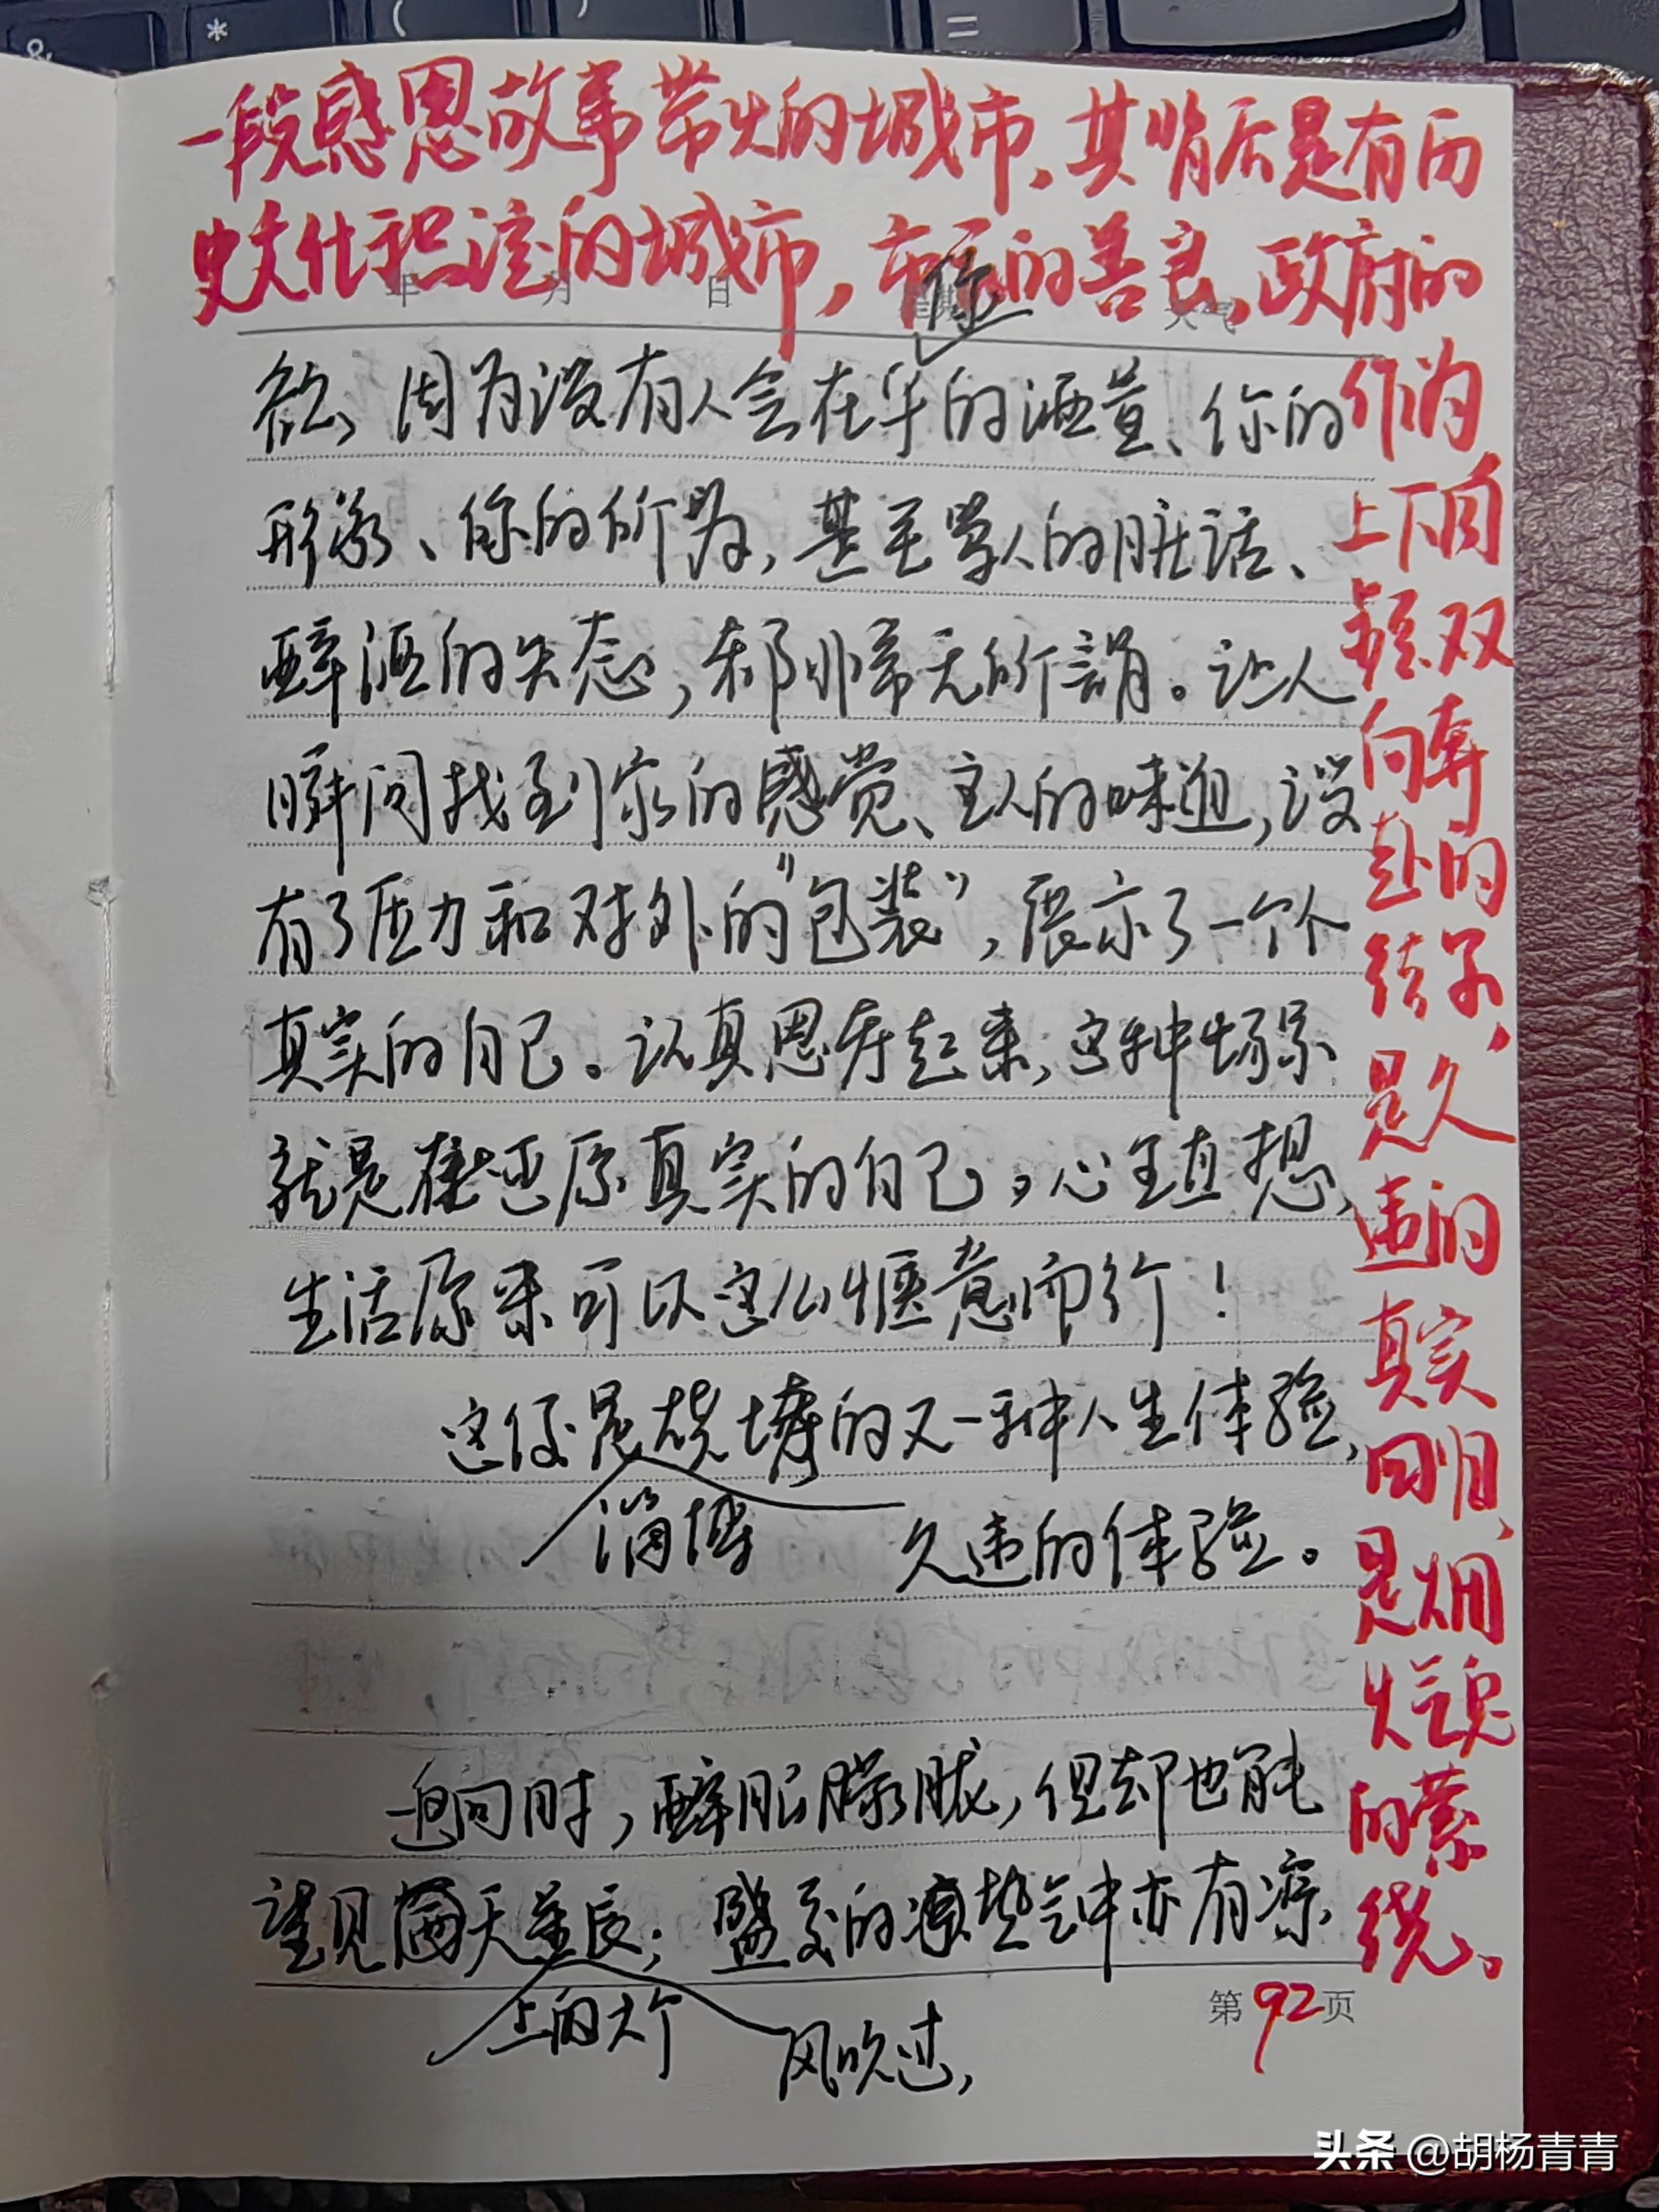 一段感恩故事带火的城市、其背后是有历
史文化积淀的城市，市民的善良、政府的
作为
上下同
频双
向奔
赴的
结果、
是久
违的
真实
回归、
是烟
火气息
的萦
绕。
年 月 日 星期 天气
你
欲、因为没有人会在乎的酒量、你的
形象、你的所为，甚至骂人的脏话、
醉酒的失态，都非常无所谓。让人
瞬间找到家的感觉、主人的味道，没
有了压力和对外的“包装”，展示了一个个
真实的自己。认真思考起来，这种场景
就是在还原真实的自己，心里直想，
生活原来可以这么惬意而行！
这便是烧烤的又一种人生体验，
淄博 久违的体验。
迫同时，醉眼朦胧，但却也能
望见满天星辰；盛夏的热气中亦有凉
上的大 风吹过，
第92页
头条 @胡杨青青